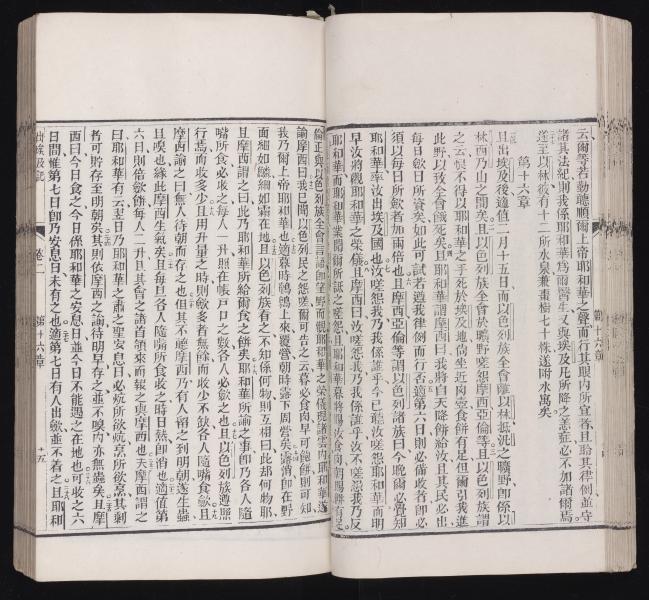 云爾等若勤聽順爾上帝耶和華之聲而行其眼內所宜者且聆其律例並守
諸其法紀則我係耶和華為爾醫生又與埃及凡所降之恙症必不加諸爾焉
遂至以林彼有十二所水泉兼棗樹七十株遂附水寓矣
第十六章
且出埃及後適值二月十五日而以色列族全會離以林抵汎之曠野即係以
林西乃山之間矣且以色列族全會於曠野嗟怨摩西亞倫等且以色列族謂
之云恨不得以耶和華之手死於埃及地尚坐近肉壺食餅有足但爾引我進
此野以致全會餓死矣且耶和華謂摩西曰我將自天降餅給汝且其民必出
每日斂日所資矣如此可試若遵我律例而行否適第六日則必備收者即必
須以每日所斂者加兩倍也且摩西亞倫等謂以色列諸族曰今晚爾必覺知
耶和華率汝出埃及國也汝嗟怨我乃我係誰乎今已聽汝嗟怨耶和華而明
早汝將觀耶和華之榮儀且摩西曰汝嗟怨我乃我係誰乎汝不嗟怨我乃反
耶和華而耶和華業聞爾所訴之嗟怨且耶和華暮將賜汝食肉
倫正與以色列族全會言語即望野而觀耶和華之榮儀現諸雲內耶和華遂
諭摩西曰我已聞以色列民之怨嗟爾可告之云暮必食肉早可飽餅則可知
我乃爾上帝耶和華也適暮時鵪鶉上來覆營朝時露下周營矣露消卽在野
面細如麟細如霜在地且以色列族看之不知係何物則互相曰此却何物耶
且摩西謂之曰此乃耶和華所給爾食之餅矣耶和華所諭之事卽乃各人隨
嘴所食必收之每人一升照在帳戶口之數各人必斂之也且以色列族遵照
行焉而收多少且用升量之時則斂多者無餘而收少不缺各人隨嘴食斂且
摩西諭之曰無人待朝而存之也但其不聽摩西乃有人留之列明朝遂生蟲
且嗅也緣此摩西生氣矣且每旦各人隨嘴所食收之時日熱卽消也適值第
六日則倍斂餅每人二升且其會之諸首領來而報之與摩西也夫摩西謂之
曰耶和華有云翌日乃耶和華之肅之聖安息日必炕所欲炕烹所欲烹其剩
者可貯存至明朝矣其則依摩西之諭待明早存之並不嗅內亦無蟲矣且摩
西曰今日食之今日係耶和華之安息日並今日不能遇之在地也可收之六
日間惟第七日卽乃安息日未有之也適第七日有人出斂並不着之且耶和
出埃及記
卷二
第十六章
十五